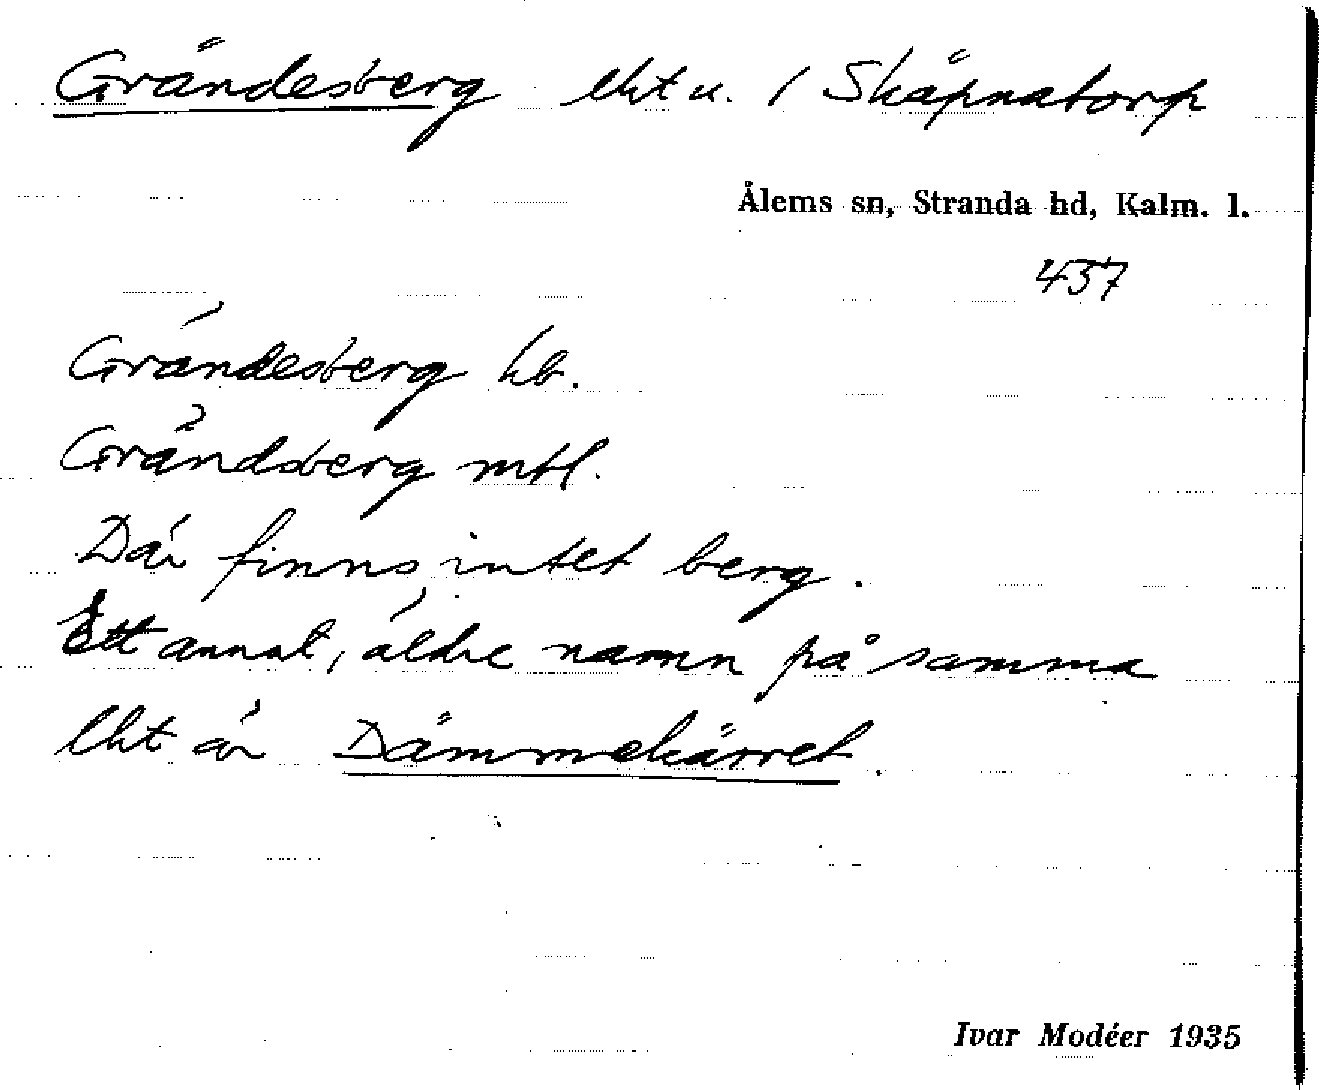 Grändesberg lht u. / Skäpnatorp
Ålems sn, Stranda hd, Kalm. l.
437
Grändesberg hb.
Grändsberg mtl.
Där finns intet berg.
Ett annat, äldre namn på samma
lht är Dämmekärret.
Ivar Modéer 1935